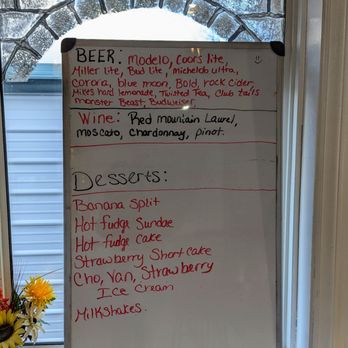 BEER: Modelo, Coors lite,
Miller lite, Bud lite, michelob ultra,
corona, blue moon, Bold rock cider
Mikes hard lemonade, Twisted Tea, Club tails
monster Beast, Budweiser
Wine: Red mountain Laurel,
moscato, chardonnay, pinot.
Desserts:
Banana Split
Hot fudge Sundae
Hot fudge Cake
Strawberry Short Cake
Cho, Van, Strawberry
Ice Cream
Milkshakes.